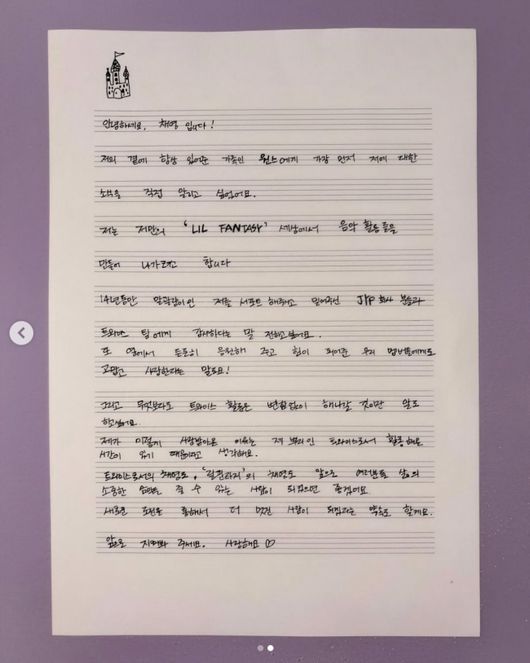 안녕하세요, 채영 입니다!
저의 곁에 항상 있어준 가족인 원스에게 가장 먼저 저에 대한
소식을 직접 알리고 싶었어요.
저는 저만의 'LIL FANTASY' 세상에서 음악 활동들을
만들어 나가려고 합니다
14년동안 말괄량이인 저를 서포트 해주시고 믿어주신 JYP 회사 분들과
트와이스 팀에게 감사하다는 말 전하고 싶어요.
또 옆에서 든든히 응원해 주고 힘이 되어준 우리 멤버들에게도
고맙고 사랑한다는 말도요!
그리고 무엇보다도 트와이스 활동은 변함없이 해나갈 것이란 말도
하고싶어요.
제가 이렇게 사랑받아온 이유는 제 뿌리인 트와이스로서 활동해온
시간이 있기 때문이라고 생각해요.
트와이스로서의 채영도, '릴판타지'의 채영도 앞으로 여러분들 삶의
소중한 을 줄 수 있는 사람이 되었으면 좋겠어요
새로운 도전을 통해서 더 멋진 사람이 되리라는 약속도 할게요.
앞으로 지켜봐 주세요. 사랑해요 ♡